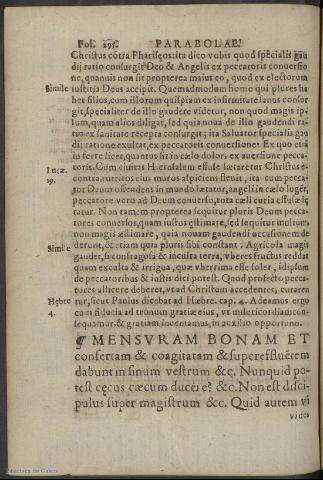 Fol. 295. PARABOLAE.
Christus cōtra Phariseos: ita dico vobis quod specialis gau
dij ratio consurgit Deo & Angelis ex peccatoris conuersio
ne, quanuis non sit propterea maius eo, quod ex electorum
Simile iustitia Deus accipit. Quemadmodum homo qui plures ha
bet filios, cum illorum quispiam ex infirmitate sanus consur
git, specialiter de illo gaudere videtur, non quod magis ip-
sum, quam alios diligat, sed quia noua de illo gaudendi ra-
tio ex sanitate recepta consurgit; ita Saluator speciali gau
dij ratione exultat, ex peccatoris conuersione. Ex quo etiā
in ferte licet, quantus sit in cælo dolor ex auersione pecca-
Lucæ. toris. Cum ciuitas Hierusalem effusè lætaretur Christus è-
19. contra, turritos eius muros aspiciens fleuit, ita cum pecca-
tor Deum offendens in mundo lætatur, angeli in cælo lugēt,
peccatore vero ad Deum conuerso, tota cæli curia effusè læ
tatur. Non tamen propterea sequitur pluris Deum pecca-
tores conuersos, quam iustos æstimare, sed sequitur multum
non magis æstimare, quia nouam gaudendi occasionem de
Simile derunt, & etiam quia pluris sibi constant. Agricola magis
gaudet, si confragosa & inculta terra, vberes fructus reddat
quam exculta & irrigua, quæ vberrima esse solet, id ipsum
de peccatoribus & iustis dici potest. Quod profecto pecca-
tores allicere deberet, vt ad Christum accedentes, curaren
Hæbre tur, sicut Paulus dicebat ad Hæbre. cap. 4. Adeamus ergo
4. cum fiducia ad tronum gratiæ eius, vt misericordiam con-
sequamur, & gratiam inueniamus, in auxilio opportuno.
¶ MENSVRAM BONAM ET
confertam & coagitatam & supereffluētem
dabunt in sinum vestrum &c. Nunquid po-
test cęcus cæcum ducere? &c. Non est disci-
pulus super magistrum &c. Quid autem vi
vides
Biblioteca de Galicia